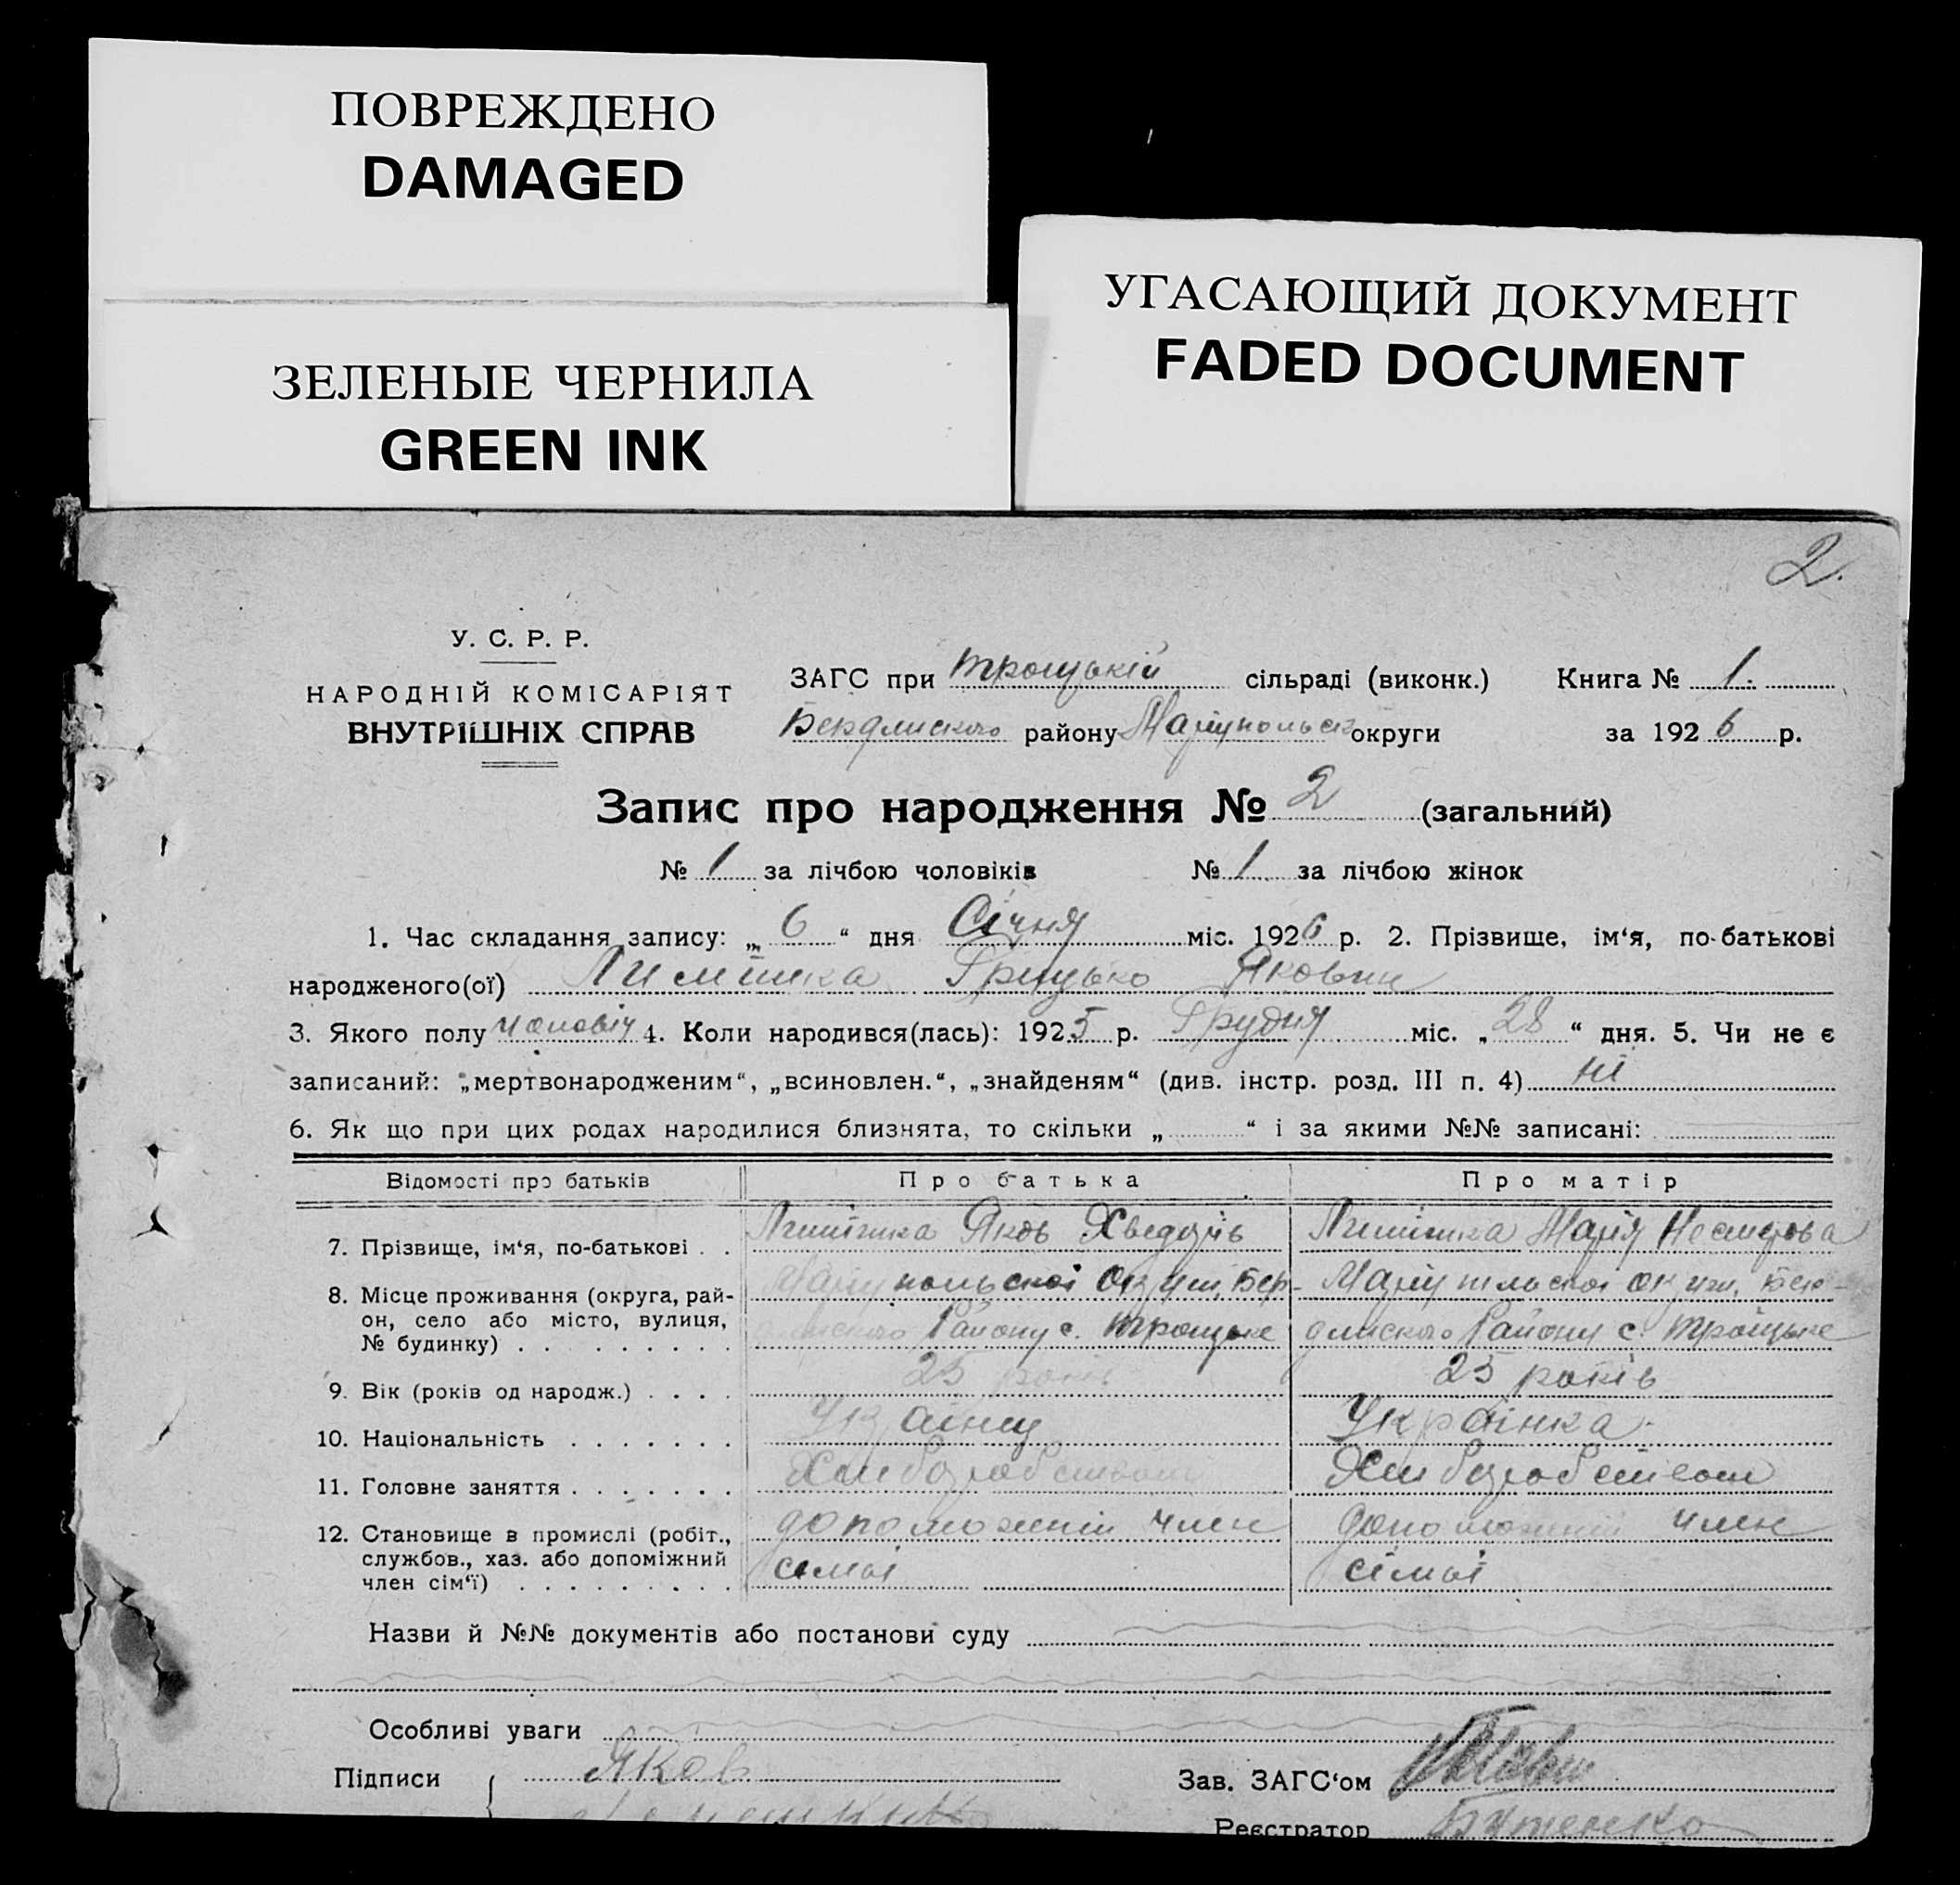 ПОВРЕЖДЕНО
DAMAGED
ЗЕЛЕНЫЕ ЧЕРНИЛА
GREEN INK
УГАСАЮЩИЙ ДОКУМЕНТ
FADED DOCUMENT
2.
У. С. Р. Р.
НАРОДНІЙ КОМІСАРІЯТ
ВНУТРІШНІХ СПРАВ
ЗАГС при Троцькій сільраді (виконк.) Книга № 1.
Бердянского району Маріупольск округи за 1926 р.
Запис про народження № 2 (загальний)
№ 1 за лічбою чоловіків № 1 за лічбою жінок
1. Час складання запису: „ 6 “ дня Січня міс. 1926 р. 2. Прізвище, ім‘я, по-батькові
народженого(ої) Грицько Якович
3. Якого полу чоловіч 4. Коли народився(лась): 1925 р. Грудня міс. „ 28 “ дня. 5. Чи не є
записаний: „мертвонародженим“, „всиновлен.“, „знайденям“ (див. інстр. розд. III п. 4) ні
6. Як що при цих родах народилися близнята, то скільки „ “ і за якими №№ записані:
Відомості про батьків Про батька Про матір
7. Прізвище, ім‘я, по-батькові . . Яков Марія
8. Місце проживання (округа, рай-он, село або місто, вулиця, № будинку) Маріупольскоі Округи, Бер-дянского Району с. Троцьке Маріупільскоі округи, Бер-дянского Району с. Троїцьке
9. Вік (років од народж.) . . . . 25 років 25 років
10. Національність . . . . . . . Українц Українка
11. Головне заняття . . . . . . . Хлиборобством Хлиборобством
12. Становище в промислі (робіт., службов., хаз. або допоміжний член сім‘ї) . . . . . . . . . допоможній член сімьі допоможній член сімьі
Назви й №№ документів або постанови суду
Особливі уваги
Підписи Яков Зав. ЗАГС‘ом
Реєстратор Бутенко